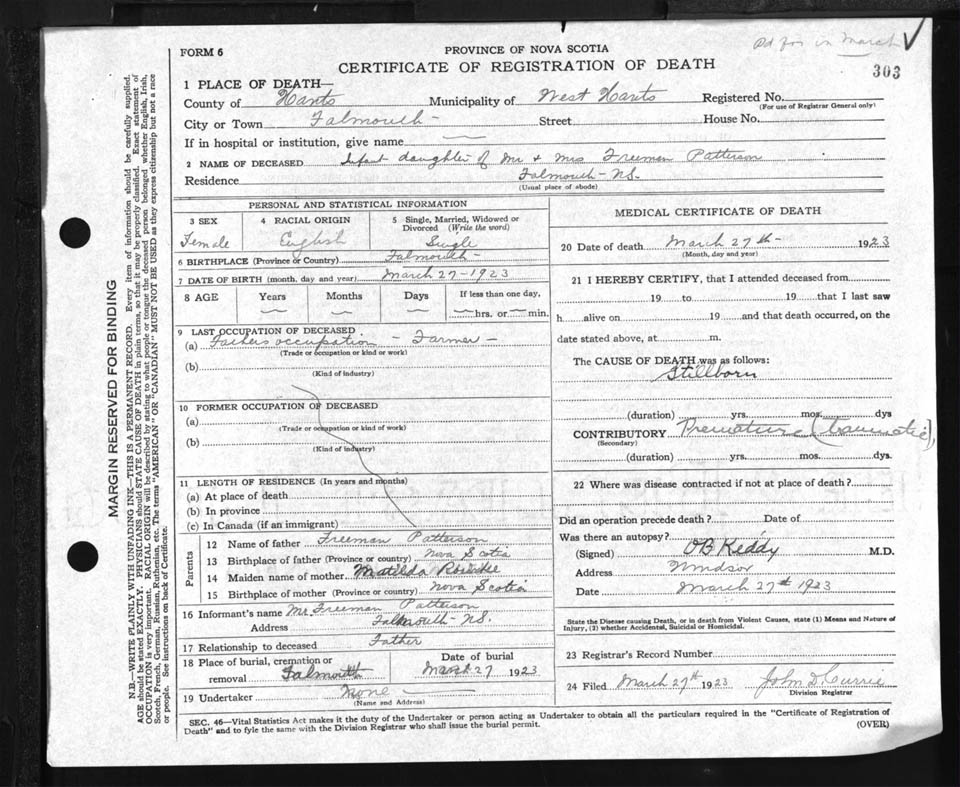 Pd for in March ✓
303
FORM 6
PROVINCE OF NOVA SCOTIA
CERTIFICATE OF REGISTRATION OF DEATH
1 PLACE OF DEATH—
County of Hants Municipality of West Hants Registered No.
(For use of Registrar General only)
City or Town Falmouth - Street House No.
If in hospital or institution, give name —
2 NAME OF DECEASED Infant daughter of Mr & Mrs Freeman Patterson
Residence Falmouth - N.S.
(Usual place of abode)
PERSONAL AND STATISTICAL INFORMATION
3 SEX 4 RACIAL ORIGIN 5 Single, Married, Widowed or
Divorced (Write the word)
Female English Single
6 BIRTHPLACE (Province or Country) Falmouth -
7 DATE OF BIRTH (month, day and year) March 27 - 1923
8 AGE Years Months Days If less than one day,
— — — — hrs. or — min.
9 LAST OCCUPATION OF DECEASED
(a) Fathers occupation - Farmer -
(Trade or occupation or kind or work)
(b)
(Kind of industry)
10 FORMER OCCUPATION OF DECEASED
(a)
(Trade or occupation or kind of work)
(b)
(Kind of industry)
11 LENGTH OF RESIDENCE (In years and months)
(a) At place of death
(b) In province
(c) In Canada (if an immigrant)
Parents
12 Name of father Freeman Patterson
13 Birthplace of father (Province or country) Nova Scotia
14 Maiden name of mother Matilda
15 Birthplace of mother (Province or country) Nova Scotia
16 Informant's name Mr Freeman Patterson
Address Falmouth - N.S.
17 Relationship to deceased Father
18 Place of burial, cremation or
removal Falmouth
Date of burial
March 27 1923
19 Undertaker None —
(Name and Address)
MEDICAL CERTIFICATE OF DEATH
20 Date of death March 27th - 1923
(Month, day and year)
21 I HEREBY CERTIFY, that I attended deceased from
19 to 19 that I last saw
h alive on 19 and that death occurred, on the
date stated above, at m.
The CAUSE OF DEATH was as follows:
Stillborn
(duration) yrs. mos. dys
CONTRIBUTORY Premature (traumatic)
(Secondary)
(duration) yrs. mos. dys.
22 Where was disease contracted if not at place of death?
Did an operation precede death? Date of
Was there an autopsy?
(Signed) OB Keddy M.D.
Address Windsor
Date March 27th 1923
State the Disease causing Death, or in death from Violent Causes, state (1) Means and Nature of
Injury, (2) whether Accidental, Suicidal or Homicidal.
23 Registrar's Record Number
24 Filed March 27th 1923 John S Currie
Division Registrar
SEC. 46—Vital Statistics Act makes it the duty of the Undertaker or person acting as Undertaker to obtain all the particulars required in the "Certificate of Registration of
Death" and to fyle the same with the Division Registrar who shall issue the burial permit.
(OVER)
MARGIN RESERVED FOR BINDING
N.B.—WRITE PLAINLY WITH UNFADING INK—THIS IS A PERMANENT RECORD. Every item of information should be carefully supplied.
AGE should be stated EXACTLY. PHYSICIANS should STATE CAUSE OF DEATH in plain terms, so that it may be properly classified. Exact statement of
OCCUPATION is very important. RACIAL ORIGIN will be described by stating to what people or tongue the deceased person belonged whether English, Irish,
Scotch, French, German, Russian, Ruthenian, etc. The terms "AMERICAN" OR "CANADIAN" MUST NOT BE USED as they express citizenship but not a race
or people. See instructions on back of Certificate.